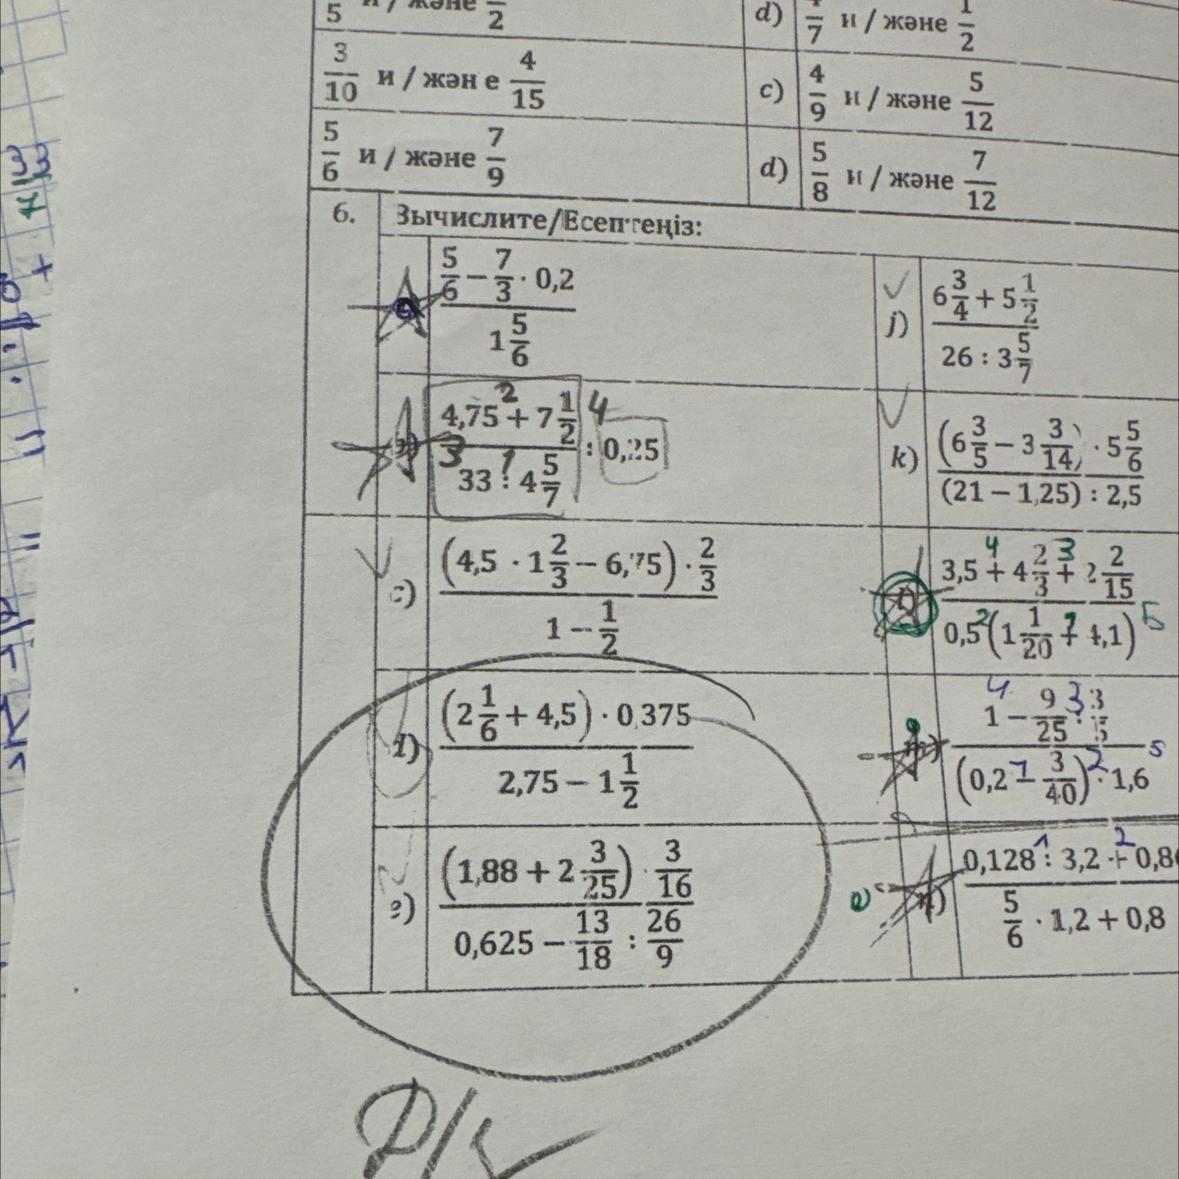 5 и / және 1/2
d) 1/7 и / және 1/2
3/10 и / жән е 4/15
c) 4/9 и / және 5/12
5/6 и / және 7/9
d) 5/8 и / және 7/12
6. Зычислите/Есептеңіз:
(5/6 − 7/3 · 0,2) / (1 5/6)
j) (6 3/4 + 5 1/2) / (26 : 3 5/7)
(4,75 + 7 1/2) / (33 : 4 5/7) : 0,25
k) ((6 3/5 − 3 3/14) · 5 5/6) / ((21 − 1,25) : 2,5)
c) ((4,5 · 1 2/3 − 6,75) · 2/3) / (1 − 1/2)
(3,5 + 4 2/3 + 2 2/15) / (0,5 (1 1/20 + 4,1))
d) ((2 1/6 + 4,5) · 0,375) / (2,75 − 1 1/2)
m) (1 − 9/25 : 3/5) / ((0,2 − 3/40) · 1,6)
e) ((1,88 + 2 3/25) · 3/16) / (0,625 − 13/18 : 26/9)
n) 0,128 : 3,2 + 0,8 / (5/6 · 1,2 + 0,8)